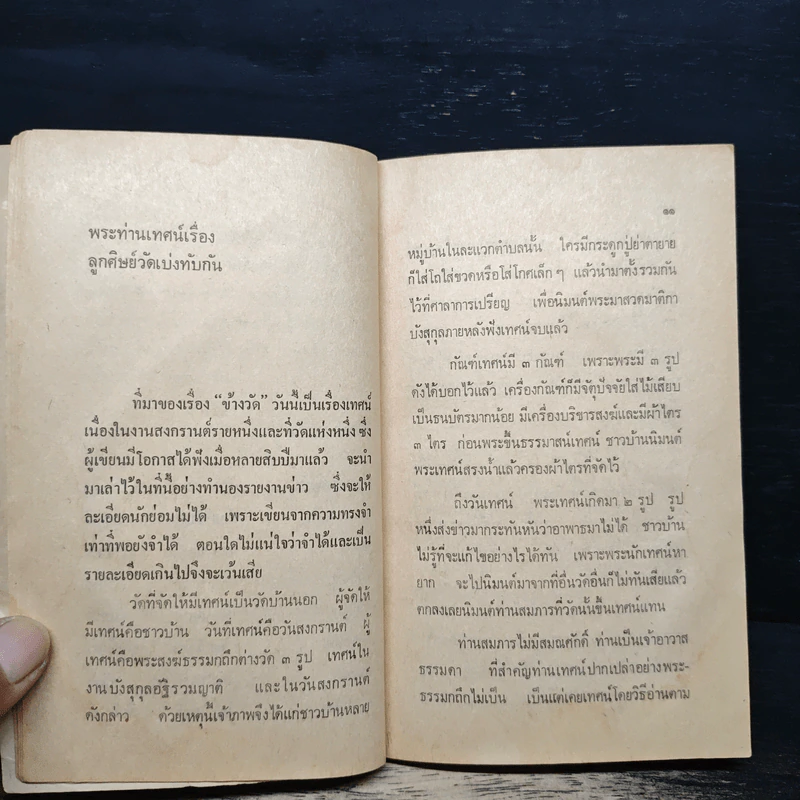 พระท่านเทศน์เรื่อง
ลูกศิษย์วัดเบ่งทับกัน
ที่มาของเรื่อง “ข้างวัด” วันนี้เป็นเรื่องเทศน์
เนื่องในงานสงกรานต์รายหนึ่งและที่วัดแห่งหนึ่ง ซึ่ง
ผู้เขียนมีโอกาสได้ฟังเมื่อหลายสิบปีมาแล้ว จะนำ
มาเล่าไว้ในที่นี้อย่างทำนองรายงานข่าว ซึ่งจะให้
ละเอียดนักย่อมไม่ได้ เพราะเขียนจากความทรงจำ
เท่าที่พอยังจำได้ ตอนใดไม่แน่ใจว่าจำได้และเป็น
รายละเอียดเกินไปจึงจะเว้นเสีย
วัดที่จัดให้มีเทศน์เป็นวัดบ้านนอก ผู้จัดให้
มีเทศน์คือชาวบ้าน วันที่เทศน์คือวันสงกรานต์ ผู้
เทศน์คือพระสงฆ์ธรรมกถึกต่างวัด ๓ รูป เทศน์ใน
งานบังสุกุลอัฐิรวมญาติ และในวันสงกรานต์
ดังกล่าว ด้วยเหตุนี้เจ้าภาพจึงได้แก่ชาวบ้านหลาย
๑๑
หมู่บ้านในละแวกตำบลนั้น ใครมีกระดูกปู่ย่าตายาย
ก็ใส่โถใส่ขวดหรือใส่โกศเล็ก ๆ แล้วนำมาตั้งรวมกัน
ไว้ที่ศาลาการเปรียญ เพื่อนิมนต์พระมาสวดมาติกา
บังสุกุลภายหลังฟังเทศน์จบแล้ว
กัณฑ์เทศน์มี ๓ กัณฑ์ เพราะพระมี ๓ รูป
ดังได้บอกไว้แล้ว เครื่องกัณฑ์ก็มีจตุปัจจัยใส่ไม้เสียบ
เป็นธนบัตรมากน้อย มีเครื่องบริขารสงฆ์และมีผ้าไตร
๓ ไตร ก่อนพระขึ้นธรรมาสน์เทศน์ ชาวบ้านนิมนต์
พระเทศน์สรงน้ำแล้วครองผ้าไตรที่จัดไว้
ถึงวันเทศน์ พระเทศน์เกิดมา ๒ รูป รูป
หนึ่งส่งข่าวมากระทันหันว่าอาพาธมาไม่ได้ ชาวบ้าน
ไม่รู้ที่จะแก้ไขอย่างไรได้ทัน เพราะพระนักเทศน์หา
ยาก จะไปนิมนต์มาจากที่อื่นวัดอื่นก็ไม่ทันเสียแล้ว
ตกลงเลยนิมนต์ท่านสมภารที่วัดนั้นขึ้นเทศน์แทน
ท่านสมภารไม่มีสมณศักดิ์ ท่านเป็นเจ้าอาวาส
ธรรมดา ที่สำคัญท่านเทศน์ปากเปล่าอย่างพระ-
ธรรมกถึกไม่เป็น เป็นแต่เคยเทศน์โดยวิธีอ่านตาม